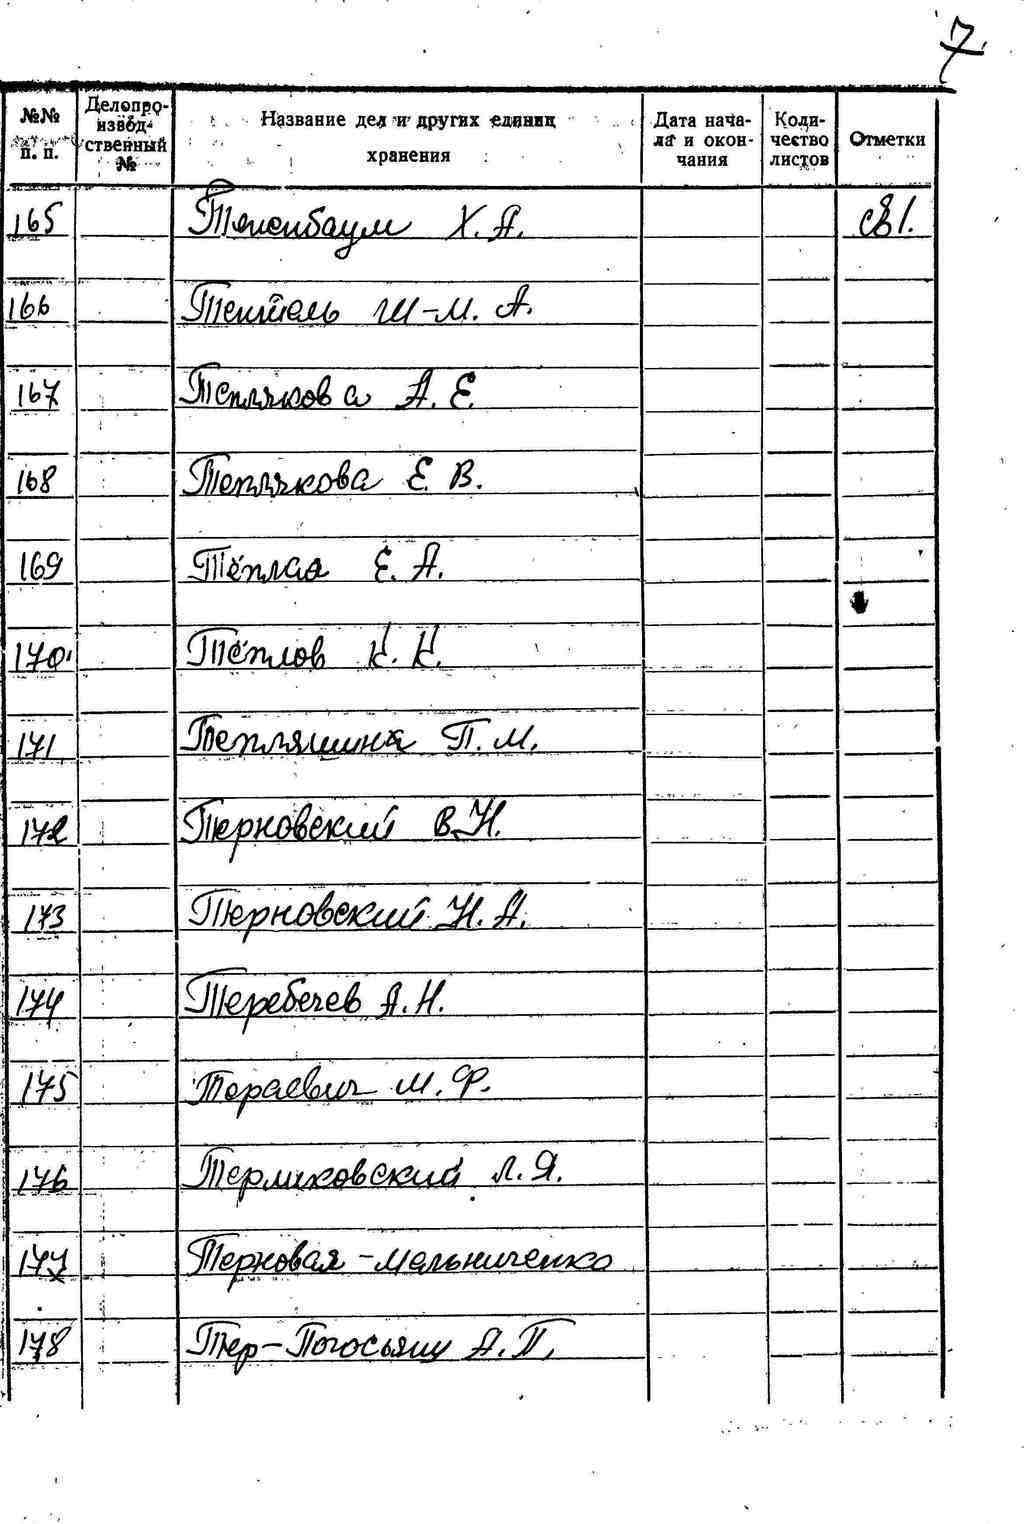 7.
№№ п. п. Делопроизводственный № Название дел и других единиц хранения Дата начала и окончания Количество листов Отметки
165 Тененбаум Х. А. св 1.
166 Тентель Ш-М. А.
167 Теплякова А. Е.
168 Теплякова Е. В.
169 Тёплая Е. А.
170. Тёплов К. К.
171 Тепляшина П. М.
172 Терновский В. Н.
173 Терновский Н. А.
174 Теребечев А. Н.
175 Тераевич М. Ф.
176 Термиковский Л. Я.
177 Терновая-Мельниченко
178 Тер-Погосьянц А. П.